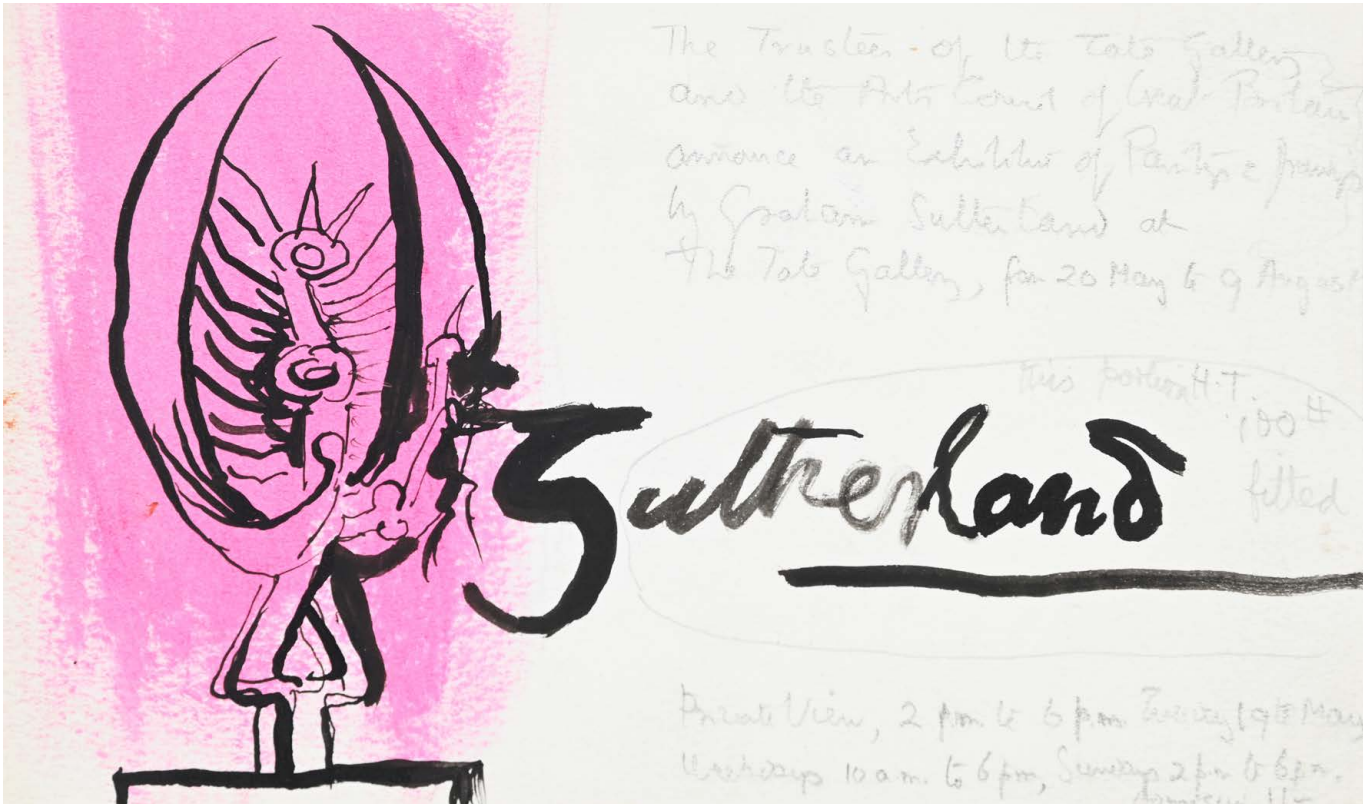 The Trustees of the Tate Gallery
and the Arts Council of Great Britain
announce an Exhibition of Paintings & Drawings
by Graham Sutherland at
The Tate Gallery, from 20 May to 9 August
this portion H.T.
100
fitted
Sutherland
Private View, 2 pm to 6 pm Tuesday 19th May
Weekdays 10 a.m. to 6 pm, Sundays 2 pm to 6 pm.